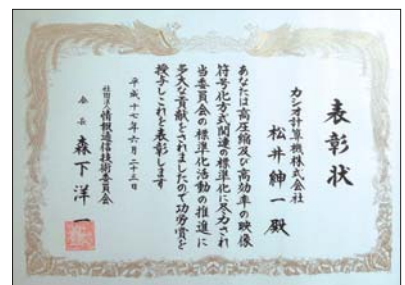 表彰状
カシオ計算機株式会社
松井紳一殿
あなたは高圧縮及び高効率の映像
符号化方式関連の標準化に尽力され
当委員会の標準化活動の推進に
多大な貢献をされましたので功労賞を
授与しこれを表彰します
平成十七年六月二十三日
社団法人情報通信技術委員会
会長 森下洋一